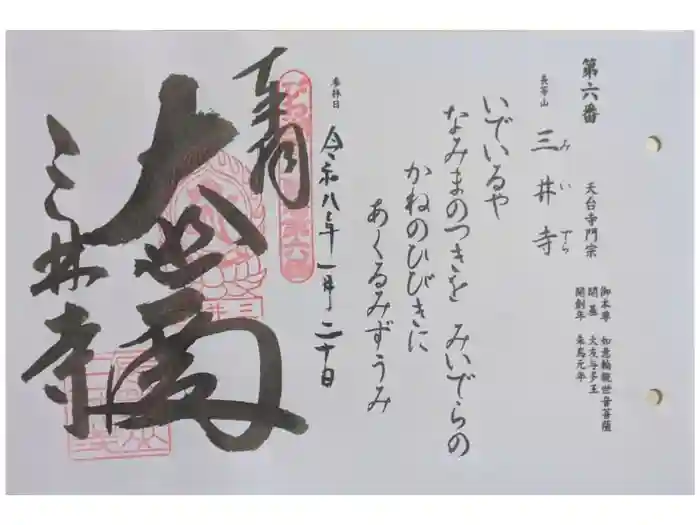 第六番 天台寺門宗
御本尊 如意輪観世音菩薩
開基 大友与多王
開創年 朱鳥元年
長等山 三井寺
みいでら
いでいるや
なみまのつきを みいでらの
かねのひびきに
あくるみずうみ
参拝日 令和八年一月二十日
奉拝
大悲閣
三井寺